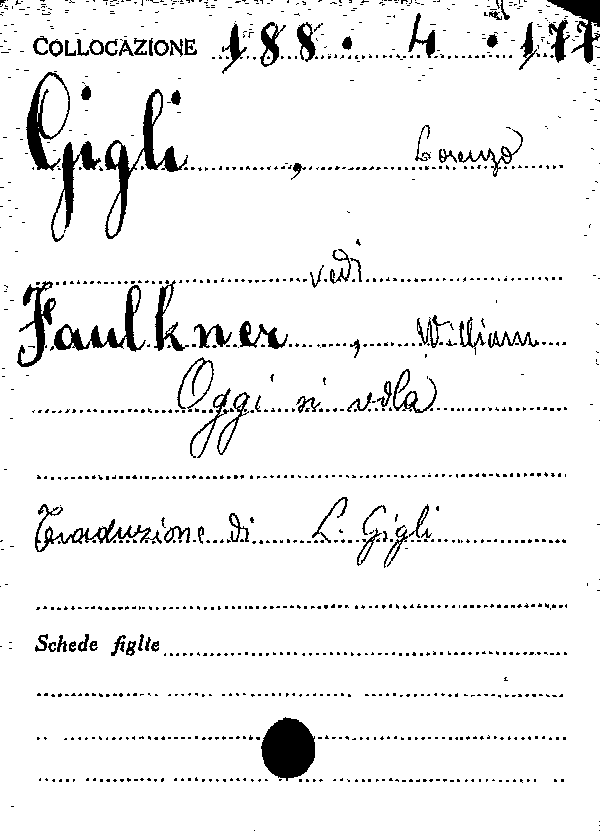 COLLOCAZIONE 188. 4. 177
Gigli, Lorenzo
vedi
Faulkner, William
Oggi si vola
Traduzione di L. Gigli
Schede figlie